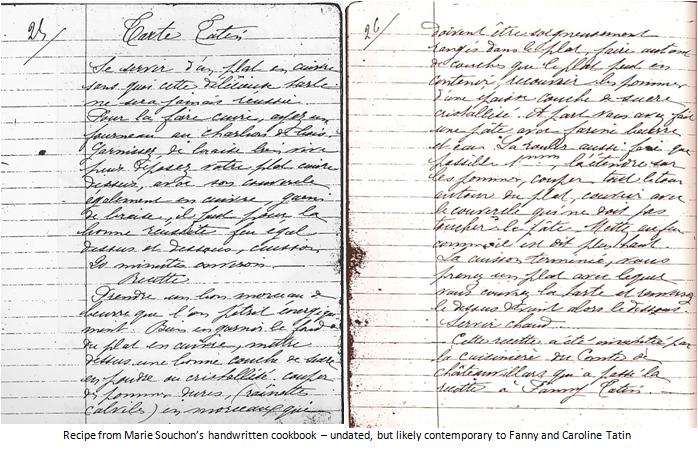 25/
Tarte Tatin
Se servir d'un plat en cuivre
sans quoi cette délicieuse tarte
ne sera jamais réussie.
Pour la faire cuire, ayez un
fourneau au charbon de bois
Garnissez de braise bien vive
pour déposer votre plat cuivre
dessus, avec son couvercle
également en cuivre, garni
de braise, il faut pour la
bonne réussite feu égal
dessus et dessous, cuisson
20 minutes environ
Recette
Prendre un bon morceau de
beurre que l'on pétrit
ment. Bien en garnir le fond
du plat en cuivre, mettre
dessus une bonne couche de sucre
en poudre ou cristallisé couper
des pommes dures, (rainettes
calvilles) en morceaux qui
26/
doivent être soigneusement
rangés dans le plat, faire autant
de couche que le plat peut en
contenir, recouvrir les pommes
d'une épaisse couche de sucre
cristallisé. A part vous avez fait
une pâte avec farine beurre
et eau. La rouler aussi fine que
possible 1 mm, l'étendre sur
les pommes, couper tout le tour
autour du plat, couvrir avec
le couvercle qui ne doit pas
toucher la pâte. Mettre au feu
comme il est dit plus haut
La cuisson terminée, vous
prenez un plat avec lequel
vous couvrez la tarte et renversez
le dessus devient alors le dessous.
Servir chaud.
Cette recette a été inventée par
la cuisinière du Comte de
Chateauvillars qui a passé la
recette à Fanny Tatin.
Recipe from Marie Souchon's handwritten cookbook – undated, but likely contemporary to Fanny and Caroline Tatin